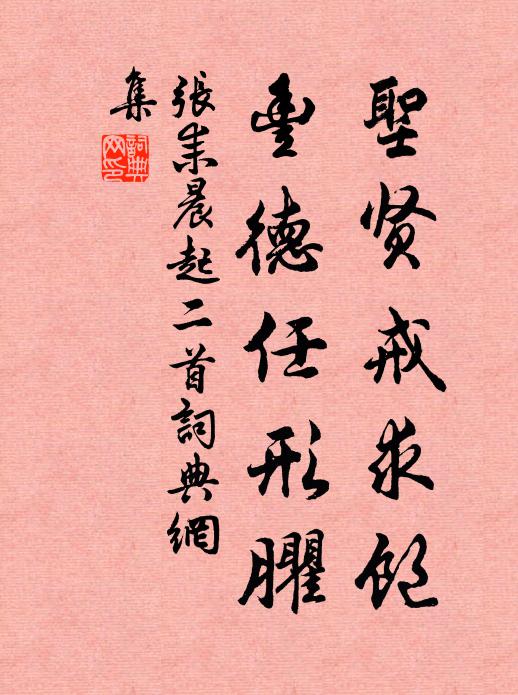 聖贤戒求飽
豊德任形臞
張耒晨起二首詞典網
集
詞典
网印